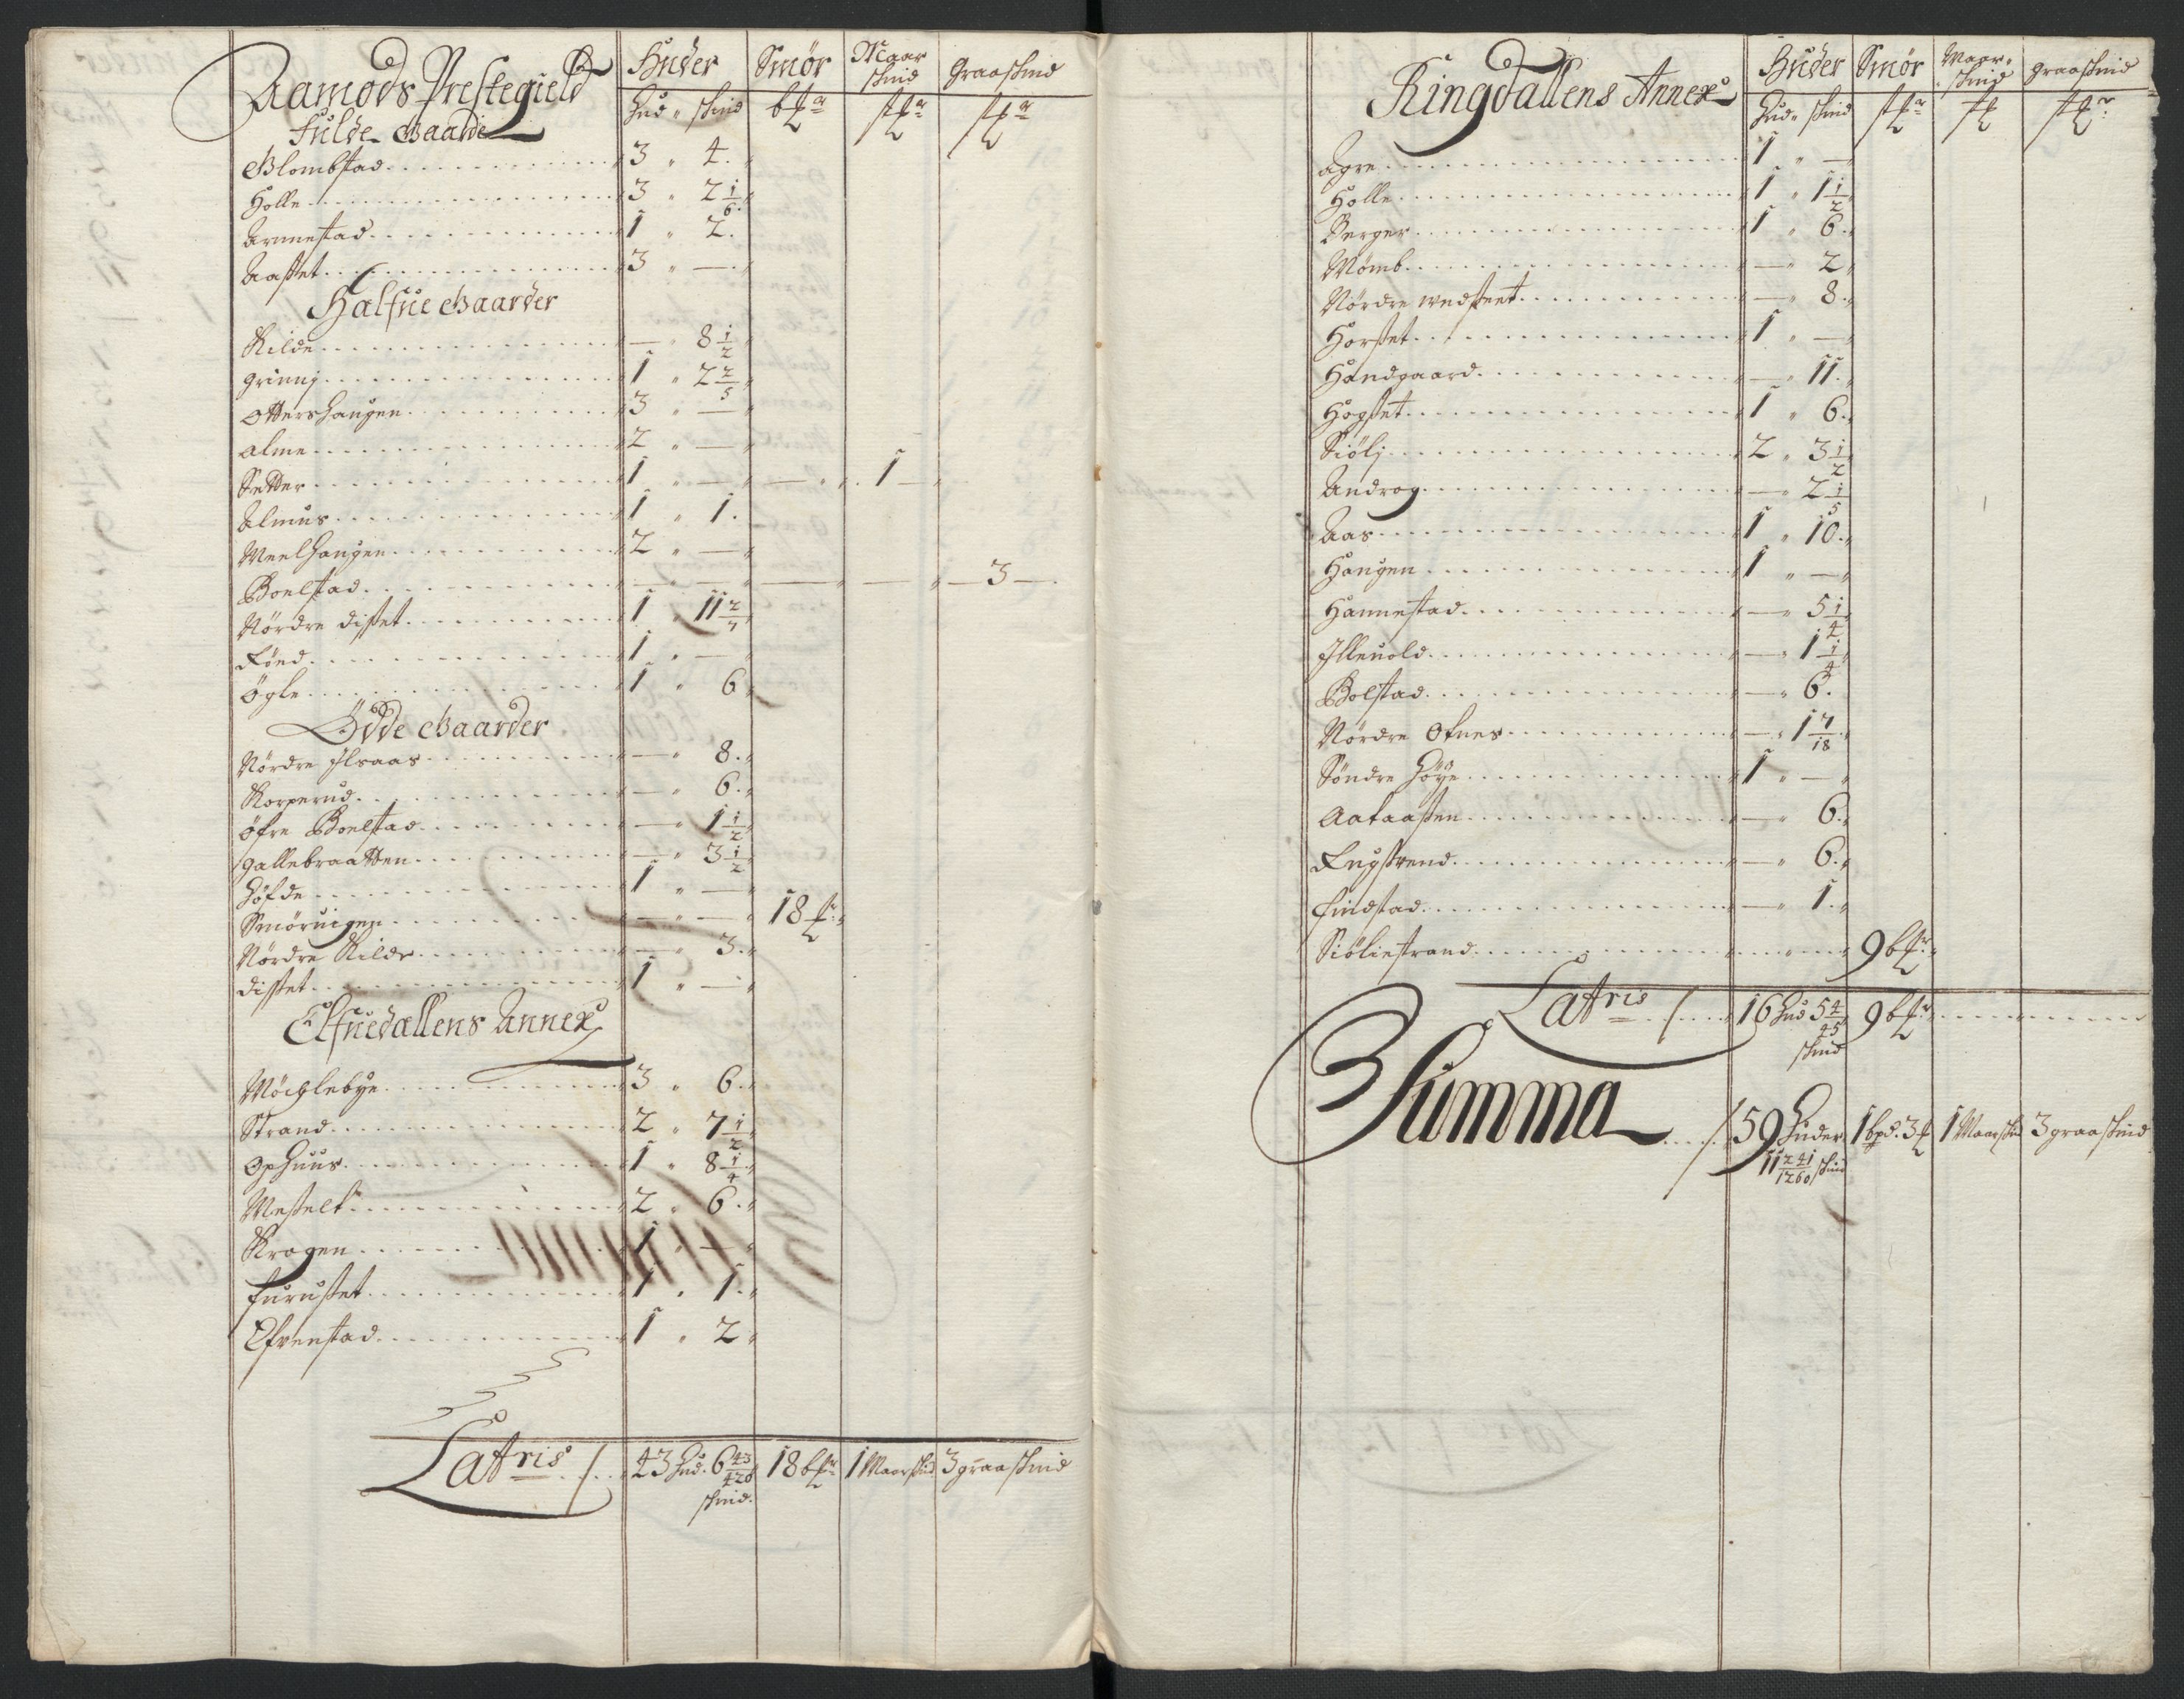 Aamods Prestegield Huder Smør Maar skind Graaskind
Fulde Gaarde Hud " skind
Blombstad 3 " 4
Holle 3 " 2 1/6
Arnnestad 1 " 2
Aasset 3 " —
Halfue Gaarder
Kilde — " 8 1/2
Grinnj 1 " 2 2/5
Ottershaugen 3 " —
Alme 2 " —
Setter 1 " — — 1 —
Almus 1 " 1
Meelhaugen 2 " —
Boelstad — " — — — 3 —
Nördre Disset 1 " 11 2/7
Löed 1 " —
Ögle 1 " 6
Ödde Gaarder
Nördre Ilsaas — " 8
Korperud — " 6
Öfre Boelstad — " 1 1/2
Gallebraatten — " 3 1/2
Höfde 1 " —
Smöruigen — " — 18
Nördre Kilde — " 3
Disset 1 " —
Elfuedallens Annex
Möchlebye 3 " 6
Strand 2 " 7 1/2
Ophuus 1 " 8 1/4
Messelt 2 " 6
Kragen 1 " —
Furusset 1 " 1
Efvenstad 1 " 2
Latris / 43 Hud. 6 43/420 skind. 18 1 Maarskind 3 graaskind
Ringdallens Annex Huder Smør Maar skind Graaskind
Hud " skind
Agre 1 " —
Holle 1 " 1 1/2
Berger 1 " 6
Mömb — " 2
Nördre Wedseet — " 8
Horsset 1 " —
Handgaard — " 11
Hogset 1 " 6
Siölj 2 " 3 1/2
Androg — " 2 1/5
Aas 1 " 10
Haugen 1 " —
Hannestad — " 5 1/4
Illeuold — " 1 1/4
Bolstad — " 6
Nördre Ofnes — " 1 7/18
Söndre Höye 1 " —
Aakaassen — " 6
Engstrend — " 6
Findstad — " 1
Siöliestrand 9
Latris / 16 Hud 5 4/45 skind 9
Summa / 59 Huder 11 241/1260 skind 1 bpd. 3 1 Maarskind 3 graaskind